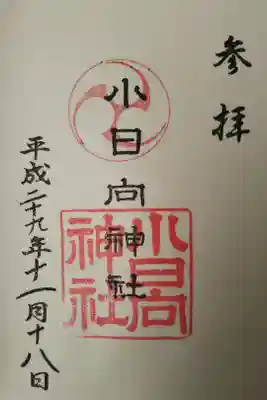 参拝
小日向神社
小日向神社
平成二十九年十一月十八日